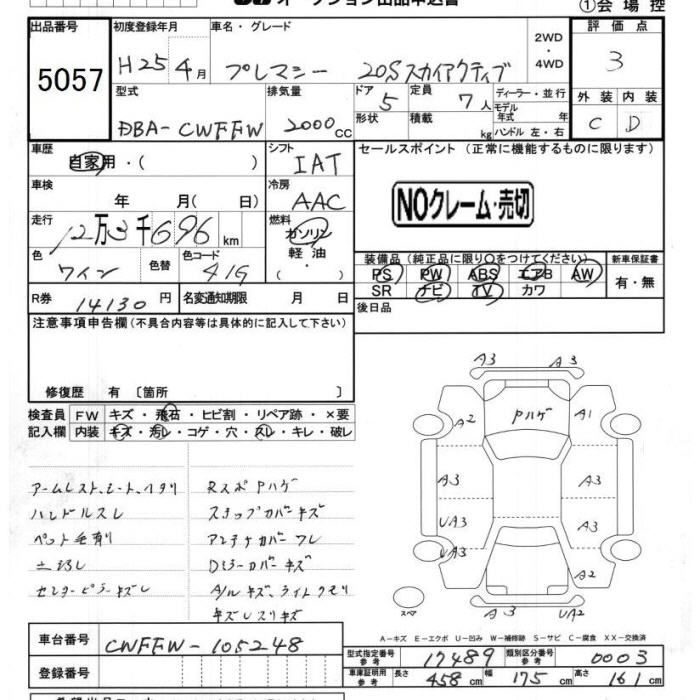 オークション出品申込書
①会場控
出品番号 初度登録年月 車名・グレード 2WD・4WD 評価点
5057 H25年4月 プレマシー 20Sスカイアクティブ 3
型式 排気量 ドア 5 定員 7人 ディーラー・並行 外装 内装
DBA-CWFFW 2000cc 形状 積載 kg モデル年式 年 ハンドル 左・右 C D
車歴 自家用・( ) シフト IAT セールスポイント (正常に機能するものに限ります)
車検 年 月( 日) 冷房 AAC
NOクレーム・売切
走行 12万3千696km 燃料 ガソリン 軽油
色 ワイン 色替 色コード 41G
装備品(純正品に限り○をつけてください) 新車保証書
PS PW ABS エアB AW 有・無
SR ナビ TV カワ
R券 14130円 名変通知期限 月 日 後日品
注意事項申告欄(不具合内容等は具体的に記入して下さい)
修復歴 有 〔箇所 〕
検査員 FW キズ・飛石・ヒビ割・リペア跡・×要
記入欄 内装 キズ・汚レ・コゲ・穴・スレ・キレ・破レ
アームレスト、シート、ヘタリ RスポPハゲ
ハンドルスレ ステップカバーキズ
ペット毛有 アンテナカバーワレ
Dミラーカバーキズ
センターピラーキズレ A/Wキズ、ライトクモリ
A3 A3
Pハゲ
A2 A1
A3 A3
UA3 A3
UA3 A2
スペア A3 UA2
A-キズ E-エクボ U-凹み W-補修跡 S-サビ C-腐食 XX-交換済
車台番号 CWFFW-105248
型式指定番号 参考 17489 類別区分番号 参考 0003
登録番号 車庫証明用 参考 長さ 458cm 幅 175cm 高さ 161cm